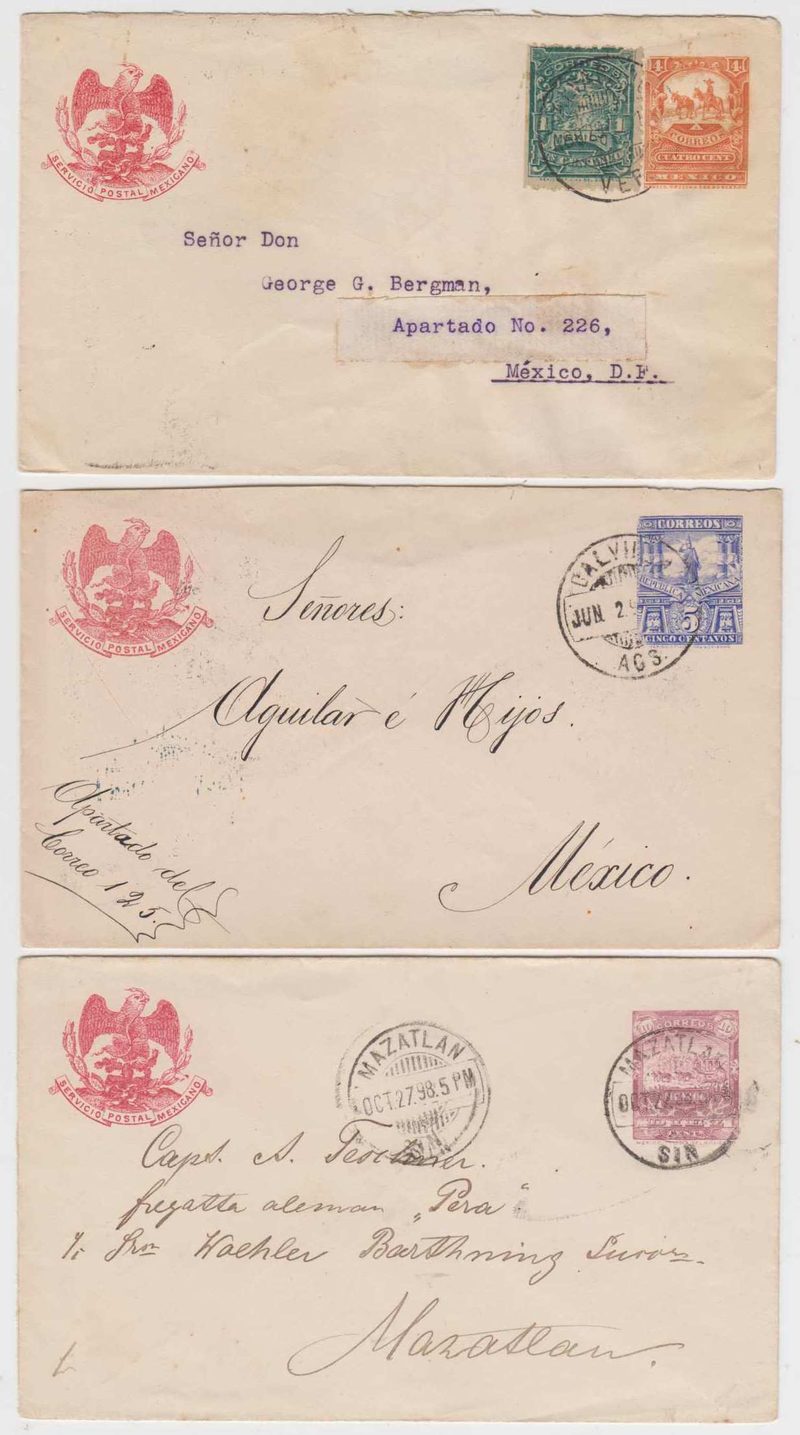 SERVICIO POSTAL MEXICANO
CORREOS
1
4 4
CORREOS
CUATRO CENT
MEXICO
VER
Señor Don
George G. Bergman,
Apartado No. 226,
México, D.F.
SERVICIO POSTAL MEXICANO
CORREOS
REPUBLICA MEXICANA
5
CINCO CENTAVOS
JUN 2
AGS.
Señores:
Aguilar é Hijos.
México.
Apartado del
Correo 125.
SERVICIO POSTAL MEXICANO
MAZATLAN
OCT.27.98.5 PM
SIN
10 CORREOS 10
MAZATLAN
OCT.27
SIN
Capt. A.
fregatta aleman „Pera"
Waehler Barthning Sucors.
Mazatlan.